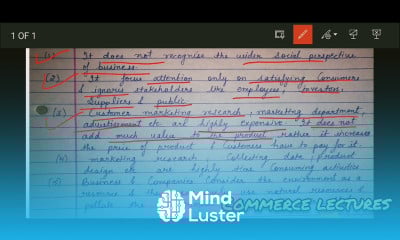 1 OF 1
(1) It does not recognise the wider social perspective
of business.
(2) It focus attention only on satisfying Consumers
& ignores stakeholders like employees, Investors,
Suppliers & public
(3) Customer marketing research, marketing department,
advertisement etc are highly expensive. It does not
add much value to the product, rather it increases
the price of product & Customers have to pay for it.
(4) marketing research, Collecting data, product
design etc are highly time Consuming activities
(5) Business & Companies Consider the environment as a
resource & use natural resources &
pollute the
Mind
Luster
COMMERCE LECTURES